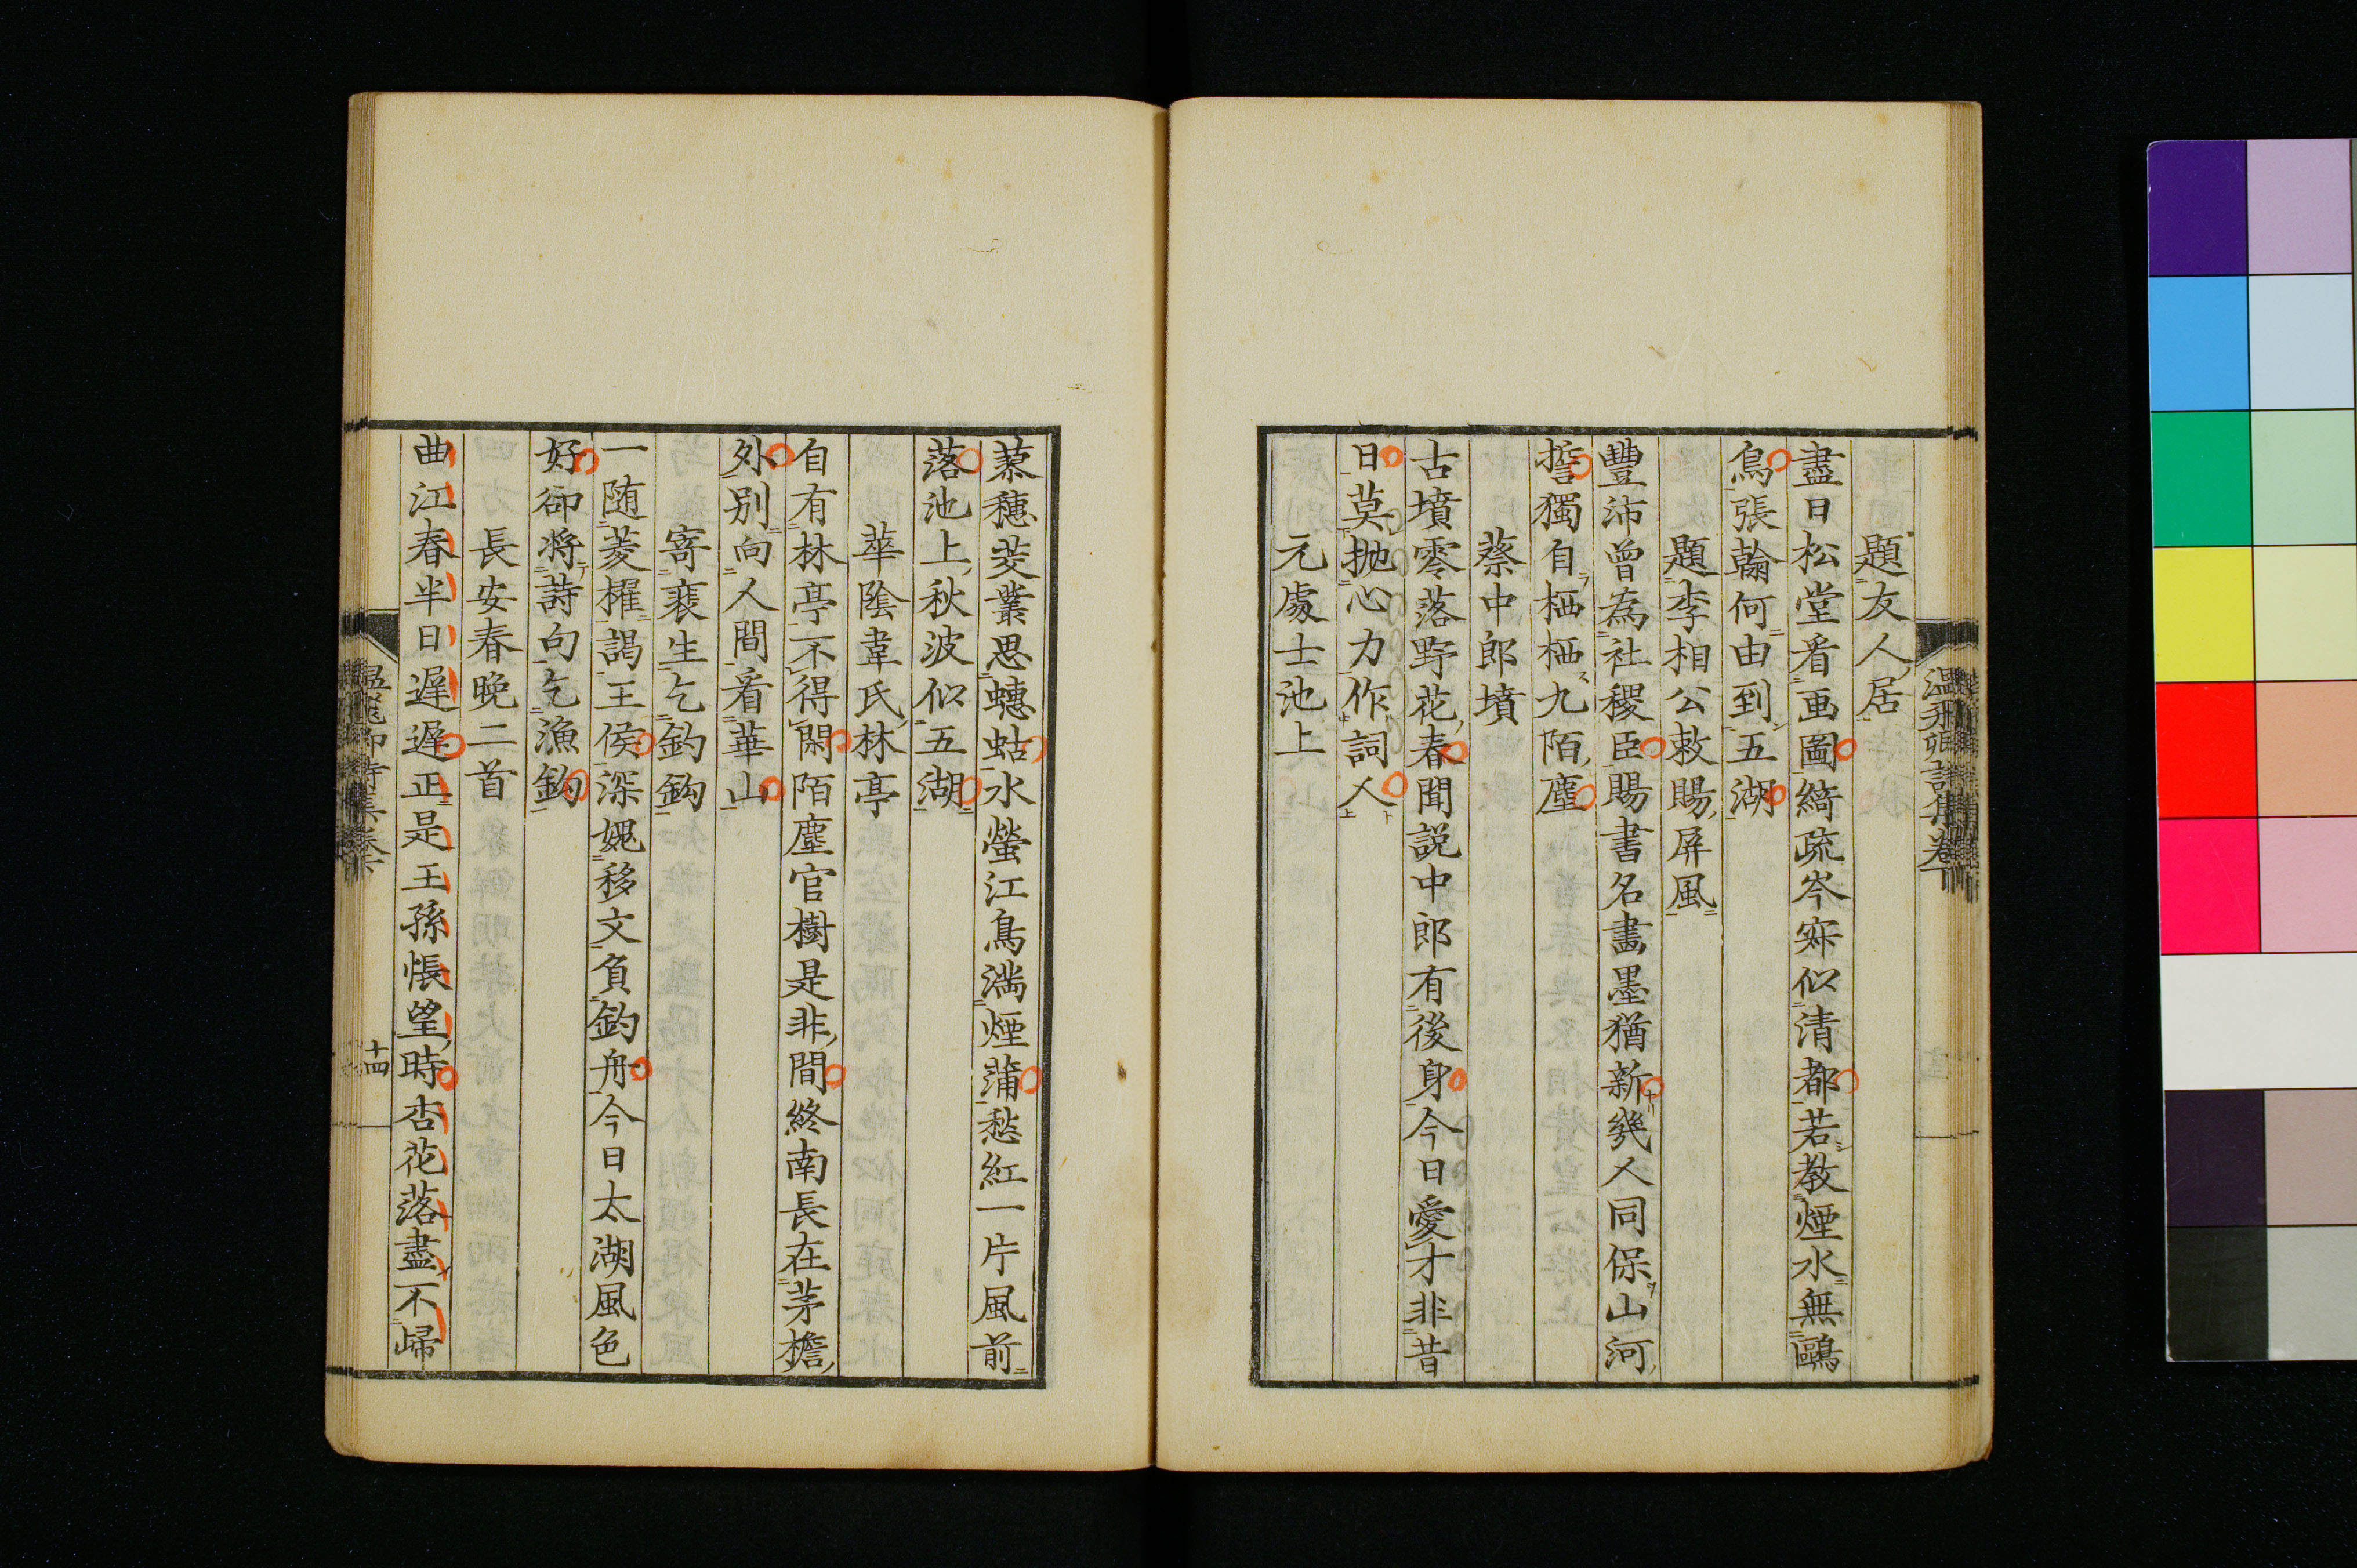 題友人居
盡日松堂看画圖綺疏岑寂似清都若教煙水無鷗
鳥張翰何由到五湖
題李相公敕賜屏風
豐沛曾為社稷臣賜書名畫墨猶新幾人同保山河
誓獨自栖栖九陌塵
蔡中郎墳
古墳零落野花春聞説中郎有後身今日愛才非昔
日莫抛心力作詞人
元處士池上
蓼穗菱叢思蟪蛄水螢江鳥满煙蒲愁紅一片風前
落池上秋波似五湖
華陰韋氏林亭
自有林亭不得閑陌塵官樹是非間終南長在茅檐
外别向人間看華山
寄裴生乞釣鈎
一随菱櫂謁王侯深媿移文負釣舟今日太湖風色
好卻將詩句乞漁鈎
長安春晚二首
曲江春半日遲遲正是王孫悵望時杏花落盡不歸
温飛卿詩集卷
十四